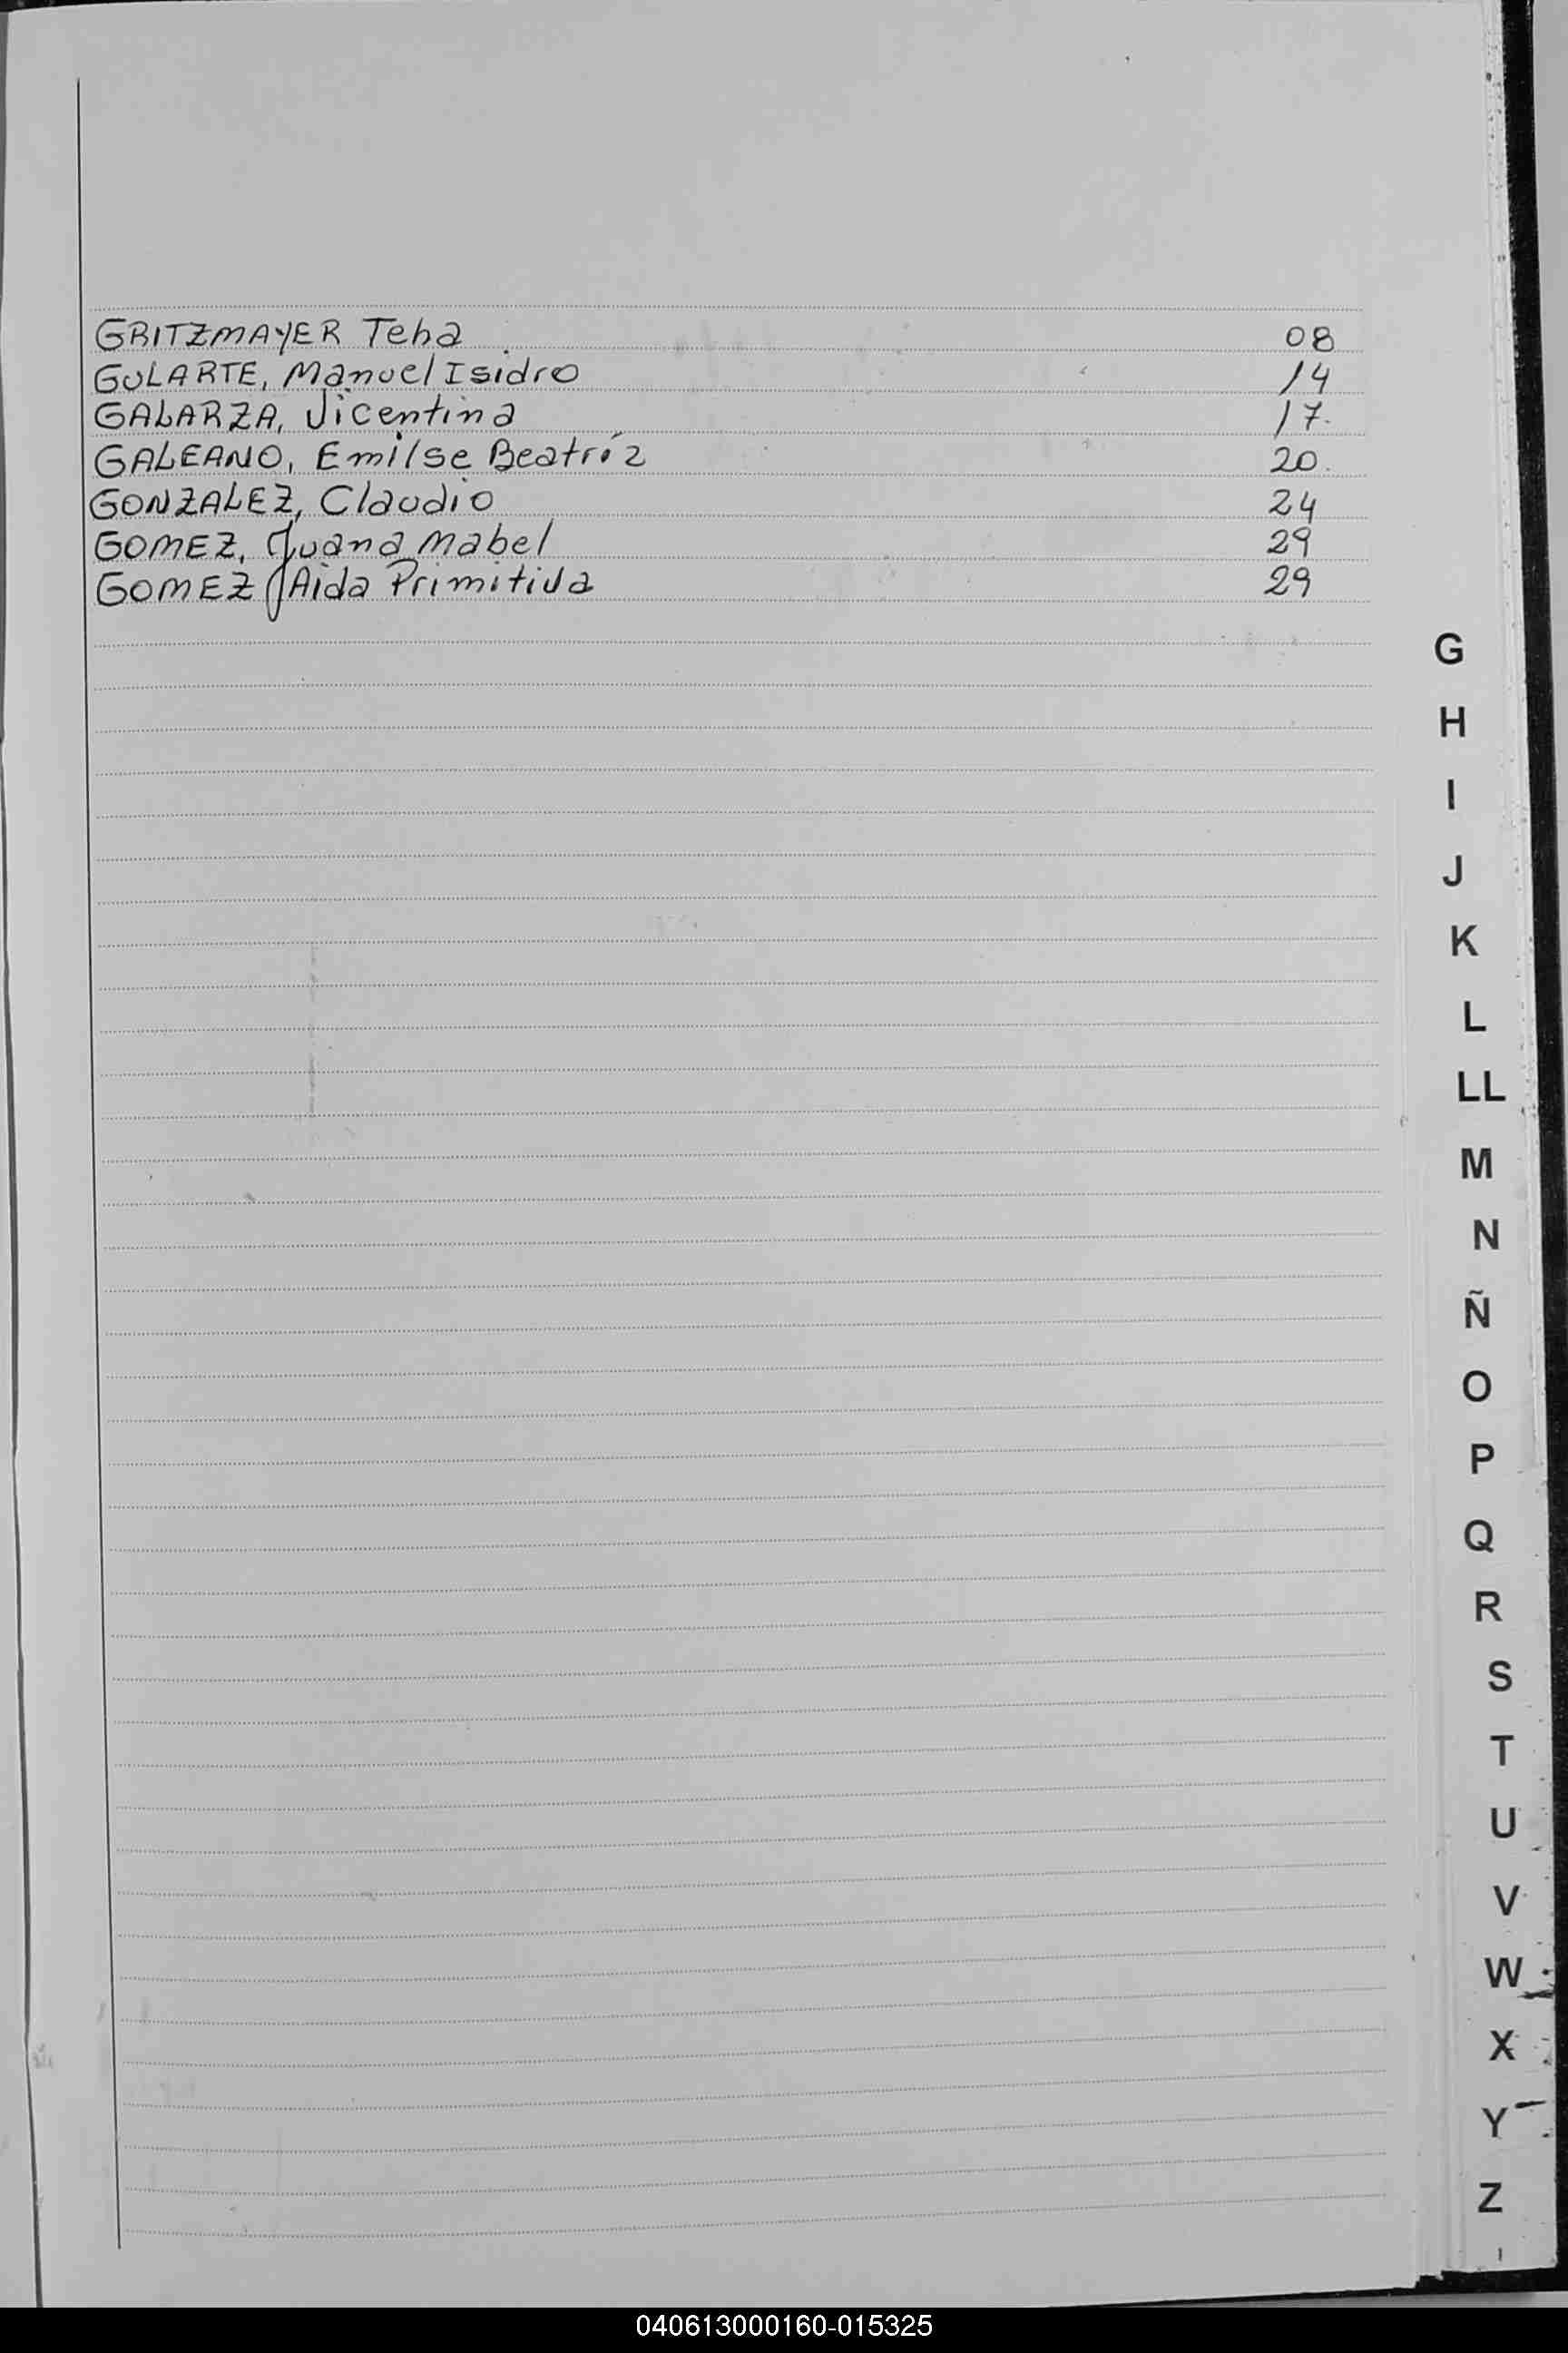 GRITZMAYER Teha 08
GULARTE, Manuel Isidro 14
GALARZA, Vicentina 17
GALEANO, Emilse Beatríz 20
GONZALEZ, Claudio 24
GOMEZ, Juana Mabel 29
GOMEZ Aida Primitiva 29
G
H
I
J
K
L
LL
M
N
Ñ
O
P
Q
R
S
T
U
V
W
X
Y
Z
040613000160-015325